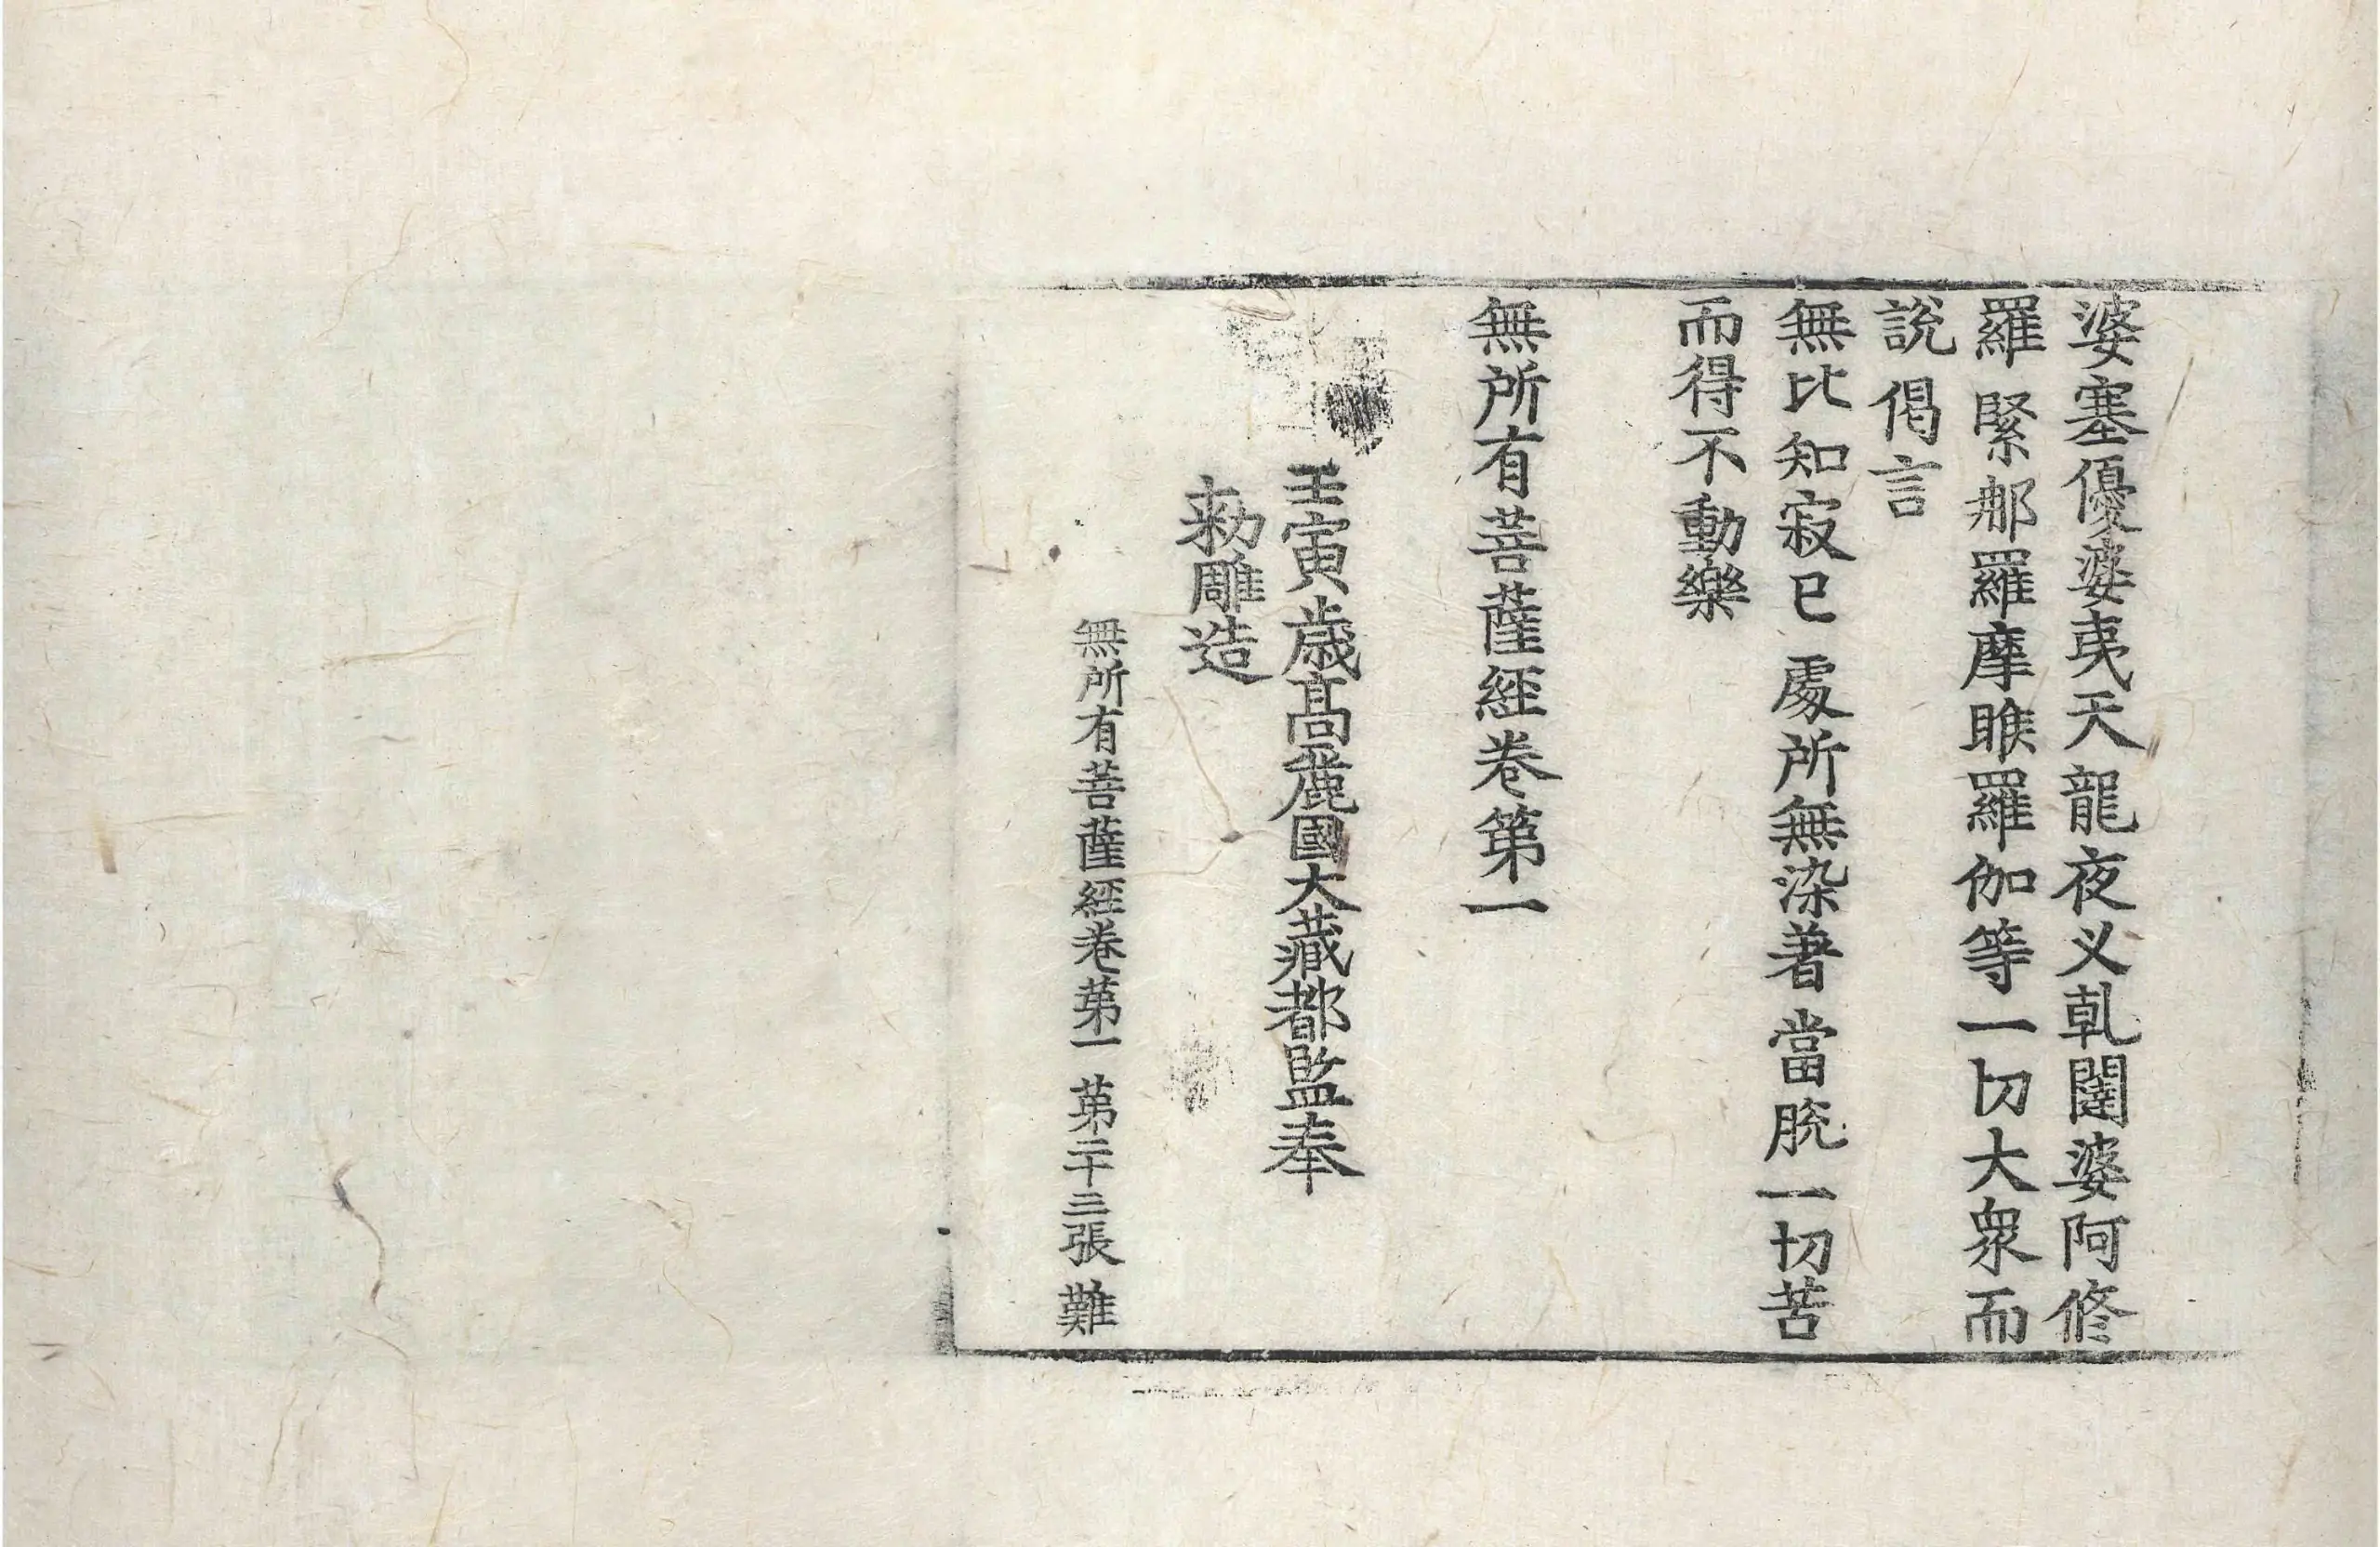 婆塞優婆夷天龍夜义乹闥婆阿修
羅緊那羅摩睺羅伽等一切大衆而
說偈言
無比知寂已 處所無染著 當脫一切苦
而得不動樂
無所有菩薩經卷第一
壬寅歲高麗國大藏都監奉
勑雕造
無所有菩薩經卷第一 第二十三張 難